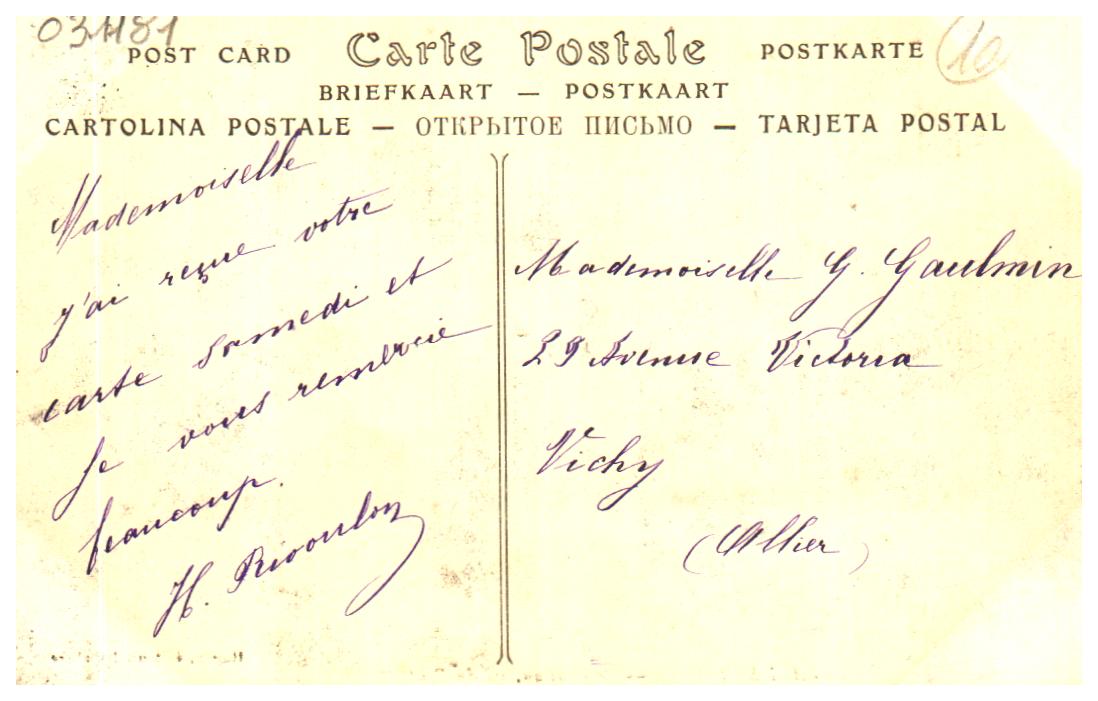 03481
10
POST CARD Carte Postale POSTKARTE
BRIEFKAART — POSTKAART
CARTOLINA POSTALE — ОТКРЫТОЕ ПИСЬМО — TARJETA POSTAL
Mademoiselle
j'ai reçue votre
carte samedi et
je vous remercie
beaucoup.
H. Rivoulon
Mademoiselle G. Gaulmin
29 Avenue Victoria
Vichy
(Allier)